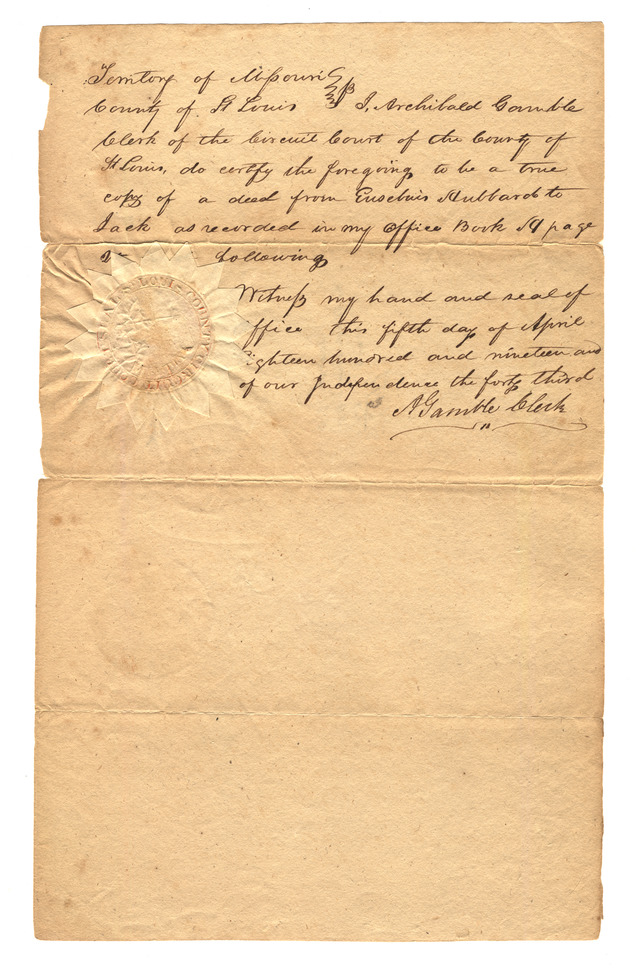 Territory of Missouri
County of St Louis } ss I, Archibald Gamble
Clerk of the Circuit Court of the County of
St Louis, do certify the foregoing to be a true
copy of a deed from Eusebius Hubbard to
Jack as recorded in my office Book H page
following
Witness my hand and seal of
office this fifth day of April
Eighteen hundred and nineteen and
of our Independence the forty third
A Gamble Clerk